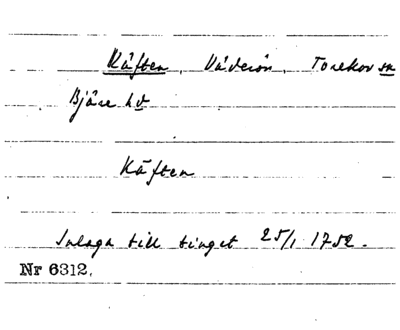 Käften, Väderön, Torekov sn
Bjäre hd
Käften
Inlaga till tinget 25/1 1752.
Nr 6312.